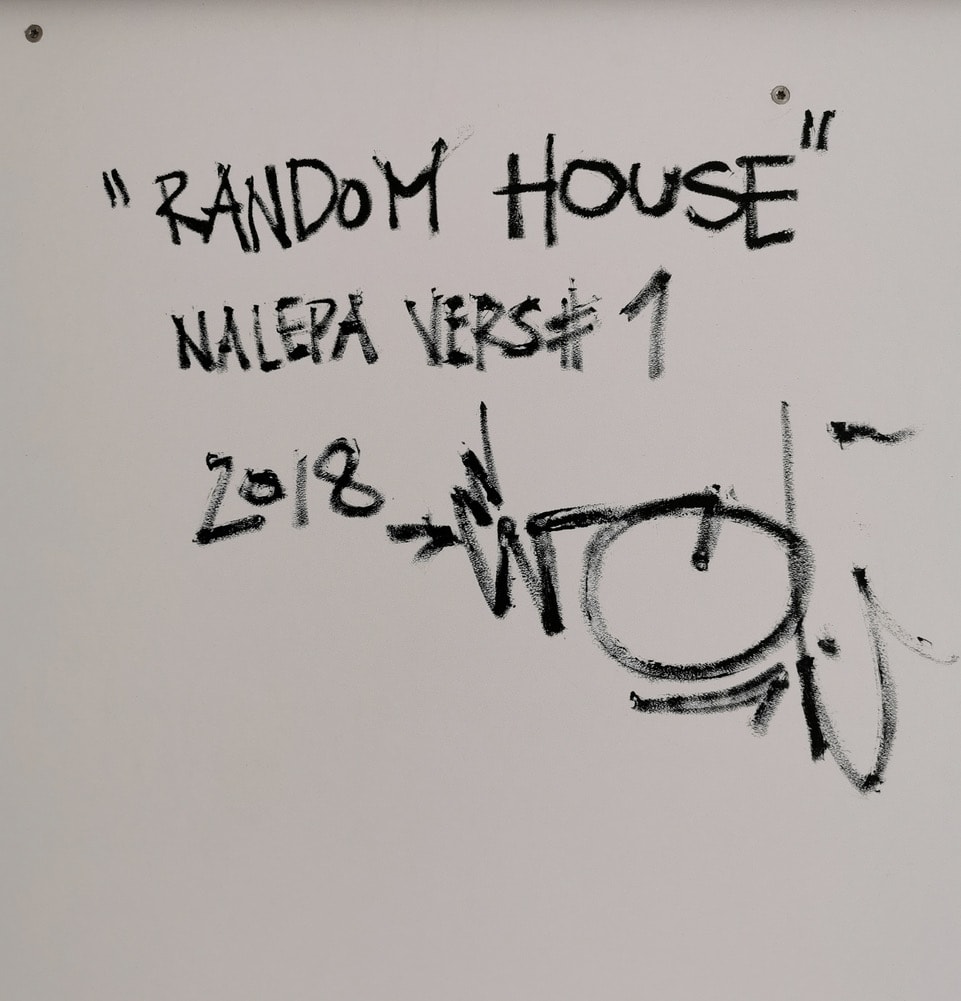 "RANDOM HOUSE"
NALEPA VERS# 1
2018